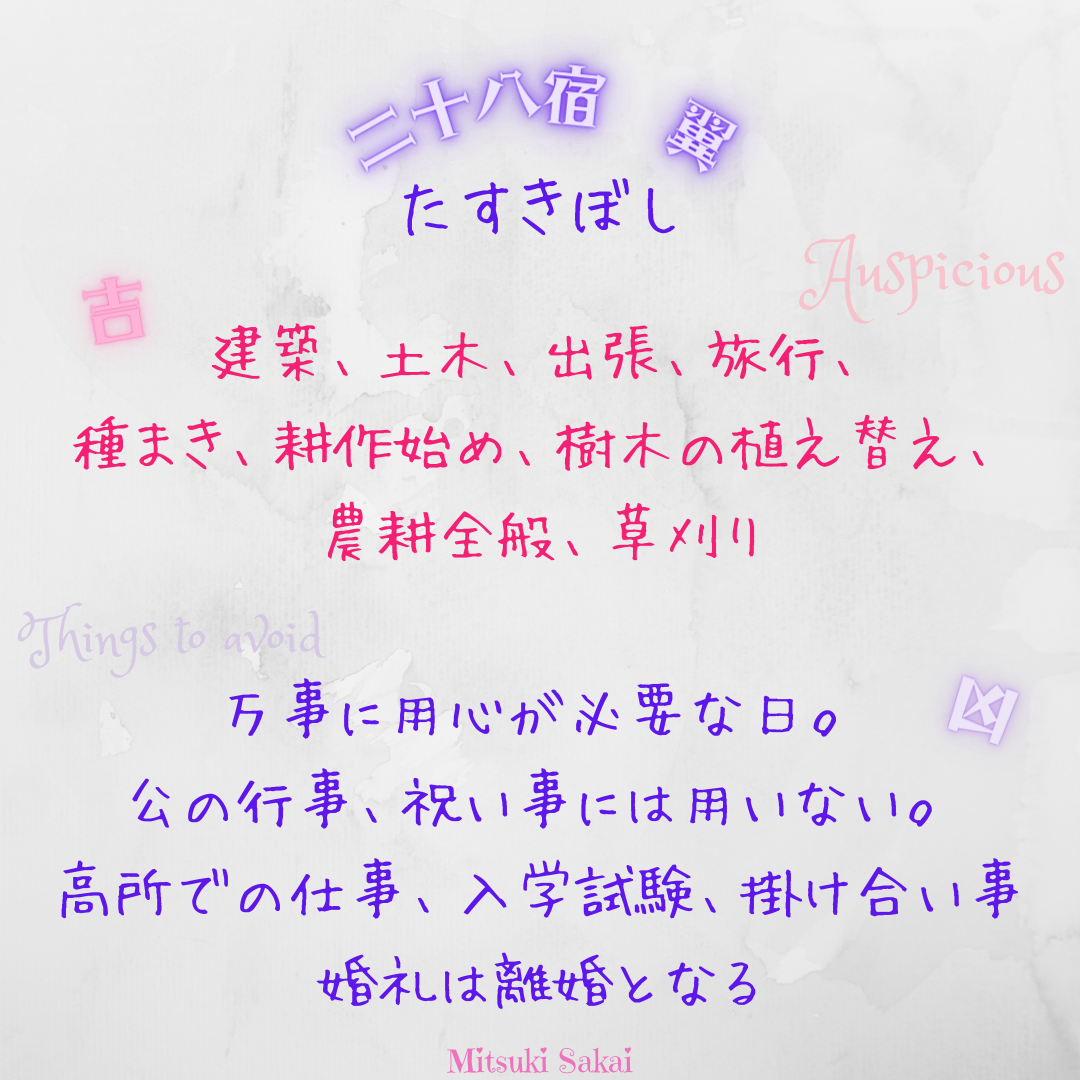 二十八宿 翼
たすきぼし
Auspicious
吉
建築、土木、出張、旅行、
種まき、耕作始め、樹木の植え替え、
農耕全般、草刈り
Things to avoid
凶
万事に用心が必要な日。
公の行事、祝い事には用いない。
高所での仕事、入学試験、掛け合い事
婚礼は離婚となる
Mitsuki Sakai